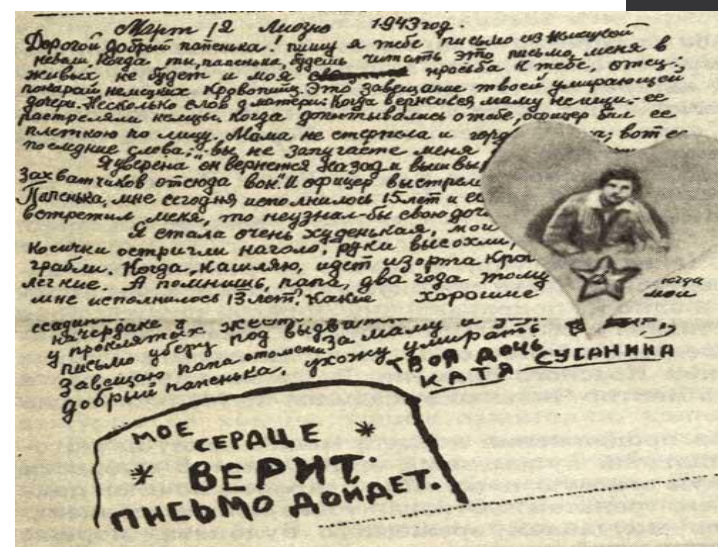 Март 12 Лиозно 1943 год.
Дорогой добрый папенька! пишу я тебе письмо из немецкой
неволи, Когда ты, папенька, будешь читать это письмо, меня в
живых не будет и моя просьба к тебе, отец:
покарай немецких кровопийц. Это завещание твоей умирающей
дочери. Несколько слов о матери. Когда вернешься маму не ищи - ее
растреляли немцы. Когда допытывались о тебе, офицер бил ее
плеткою по лицу. Мама не стерпела и горд а, вот ее
последние слова: „вы не запугаете меня
Я уверена он вернется назад и вышвы
захватчиков отсюда вон". И офицер выстрел
Папенька, мне сегодня исполнилось 15 лет и ес
встретил меня, то неузнал-бы свою доч
Я стала очень худенькая, мои
косички остригли наголо, руки высохли,
грабли. Когда кашляю, идет изорта кро
легкие. А помнишь, папа, два года тому когда
мне исполнилось 13 лет. Какие хорошие мои
ссадин
на чердаке в жест
у проклятых
письмо уберу под выдват
Завещаю папа отомсти за маму и
добрый папенька, ухожу умирать
ТВОЯ ДОЧЬ
КАТЯ СУСАНИНА
МОЕ
СЕРДЦЕ
ВЕРИТ.
ПИСЬМО ДОЙДЕТ.